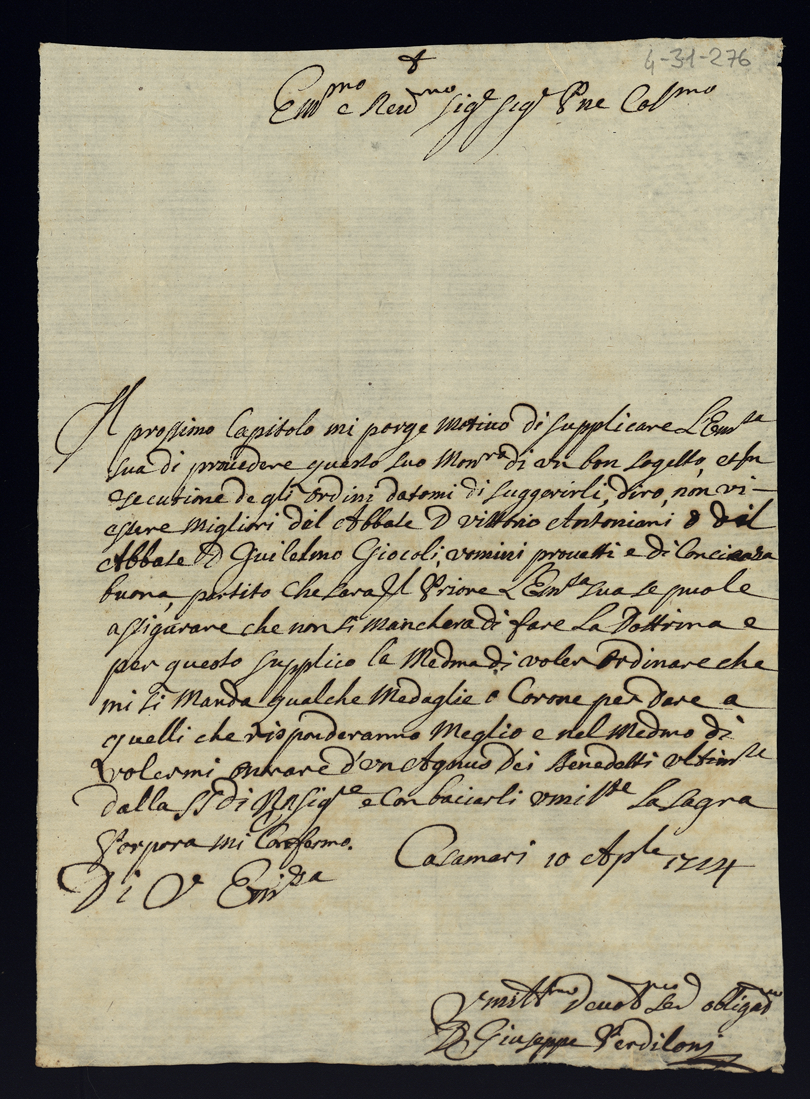 4-31-276
Em.mo e Reu.mo Sig.e Sig.e Pne Col.mo
Il prossimo Capitolo mi porge motiuo di supplicare L'Em.za
sua di prouedere questo suo Mon.ro di un bon sogetto, et In
esecutione degli ordini datomi di suggerirli, diro, non vi-
essere migliori del Abbate D Vittorio Antoniani o del
Abbate D Guilelmo Giocoli, uomini prouetti e di Concienza
buona, partito che sara Il Priore L'Em.za sua se puole
assigurare che non si manchera di fare La Dottrina e
per questo supplico la Medma di voler ordinare che
mi si manda qualche Medaglie o Corone per dare a
quelli che risponderanno Meglio e nel Medmo di
volermi onorare d'un Agnus Dei Benedetti ultim.te
dalla SS di N Sig.e e Con baciarli umil.te La sagra
Porpora mi Confermo. Casamari 10 Ap.le 1714
Di V.e Em.za
Vmill.mo Deuot.mo Ser obligat.mo
D Giuseppe Verdiloni